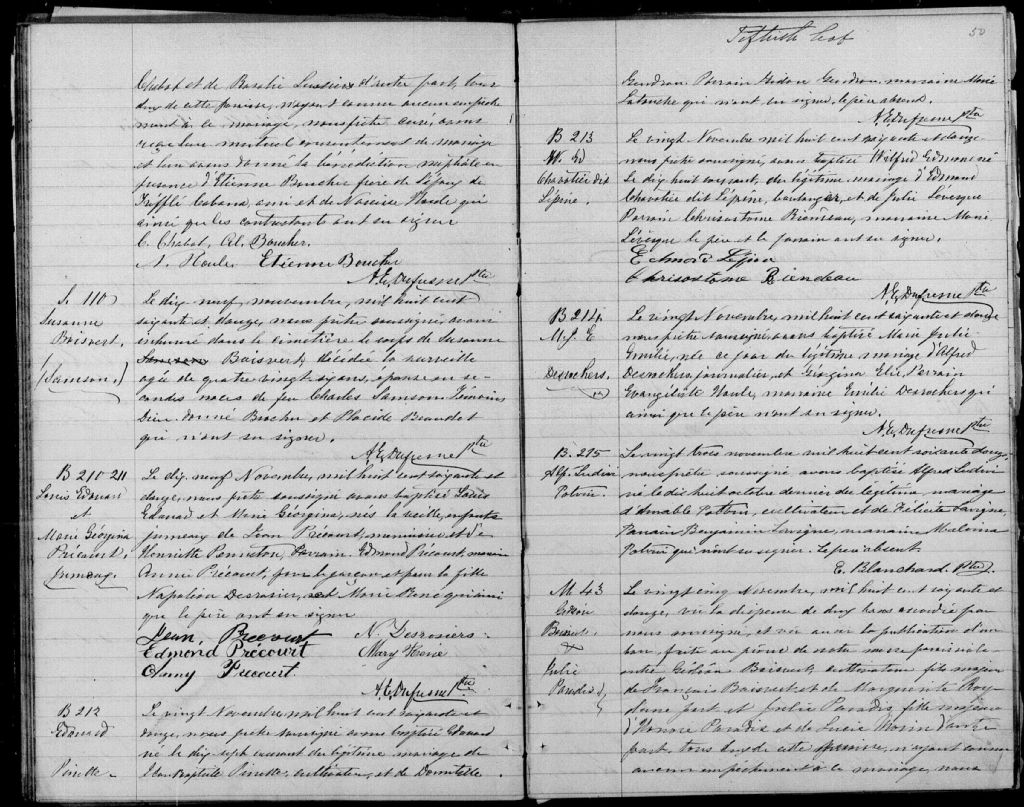 Chabot et de Rosalie Lussier d'autre part, tous
deux de cette paroisse, n'ayant connu aucun empêche
ment à ce mariage, nous prêtre curé, avons
reçu leur mutuel consentement de mariage
et leur avons donné la bénédiction nuptiale en
présence d'Etienne Boucher frère de l'époux de
Trefflé Cabana, ami et de Narcisse Houle qui
ainsi que les contractants ont su signer
C. Chabot, Al. Boucher.
N. Houle Etienne Boucher
A. E. Dufresne Ptre
S. 110
Susanne
Boisvert,
(Samson,)
Le dix neuf, novembre, mil huit cent
soixante et douze, nous prêtre soussigné, avons
inhumé dans le cimetière le corps de Susanne
Boisvert, décédée la surveille
agée de quatre vingt six ans, épouse en se-
condes noces de feu Charles Samson. Témoins
Dieudonné Brochu et Placide Beaudet
qui n'ont su signer.
A. E. Dufresne Ptre
B 210 211
Louis Edouard
et
Marie Géorgina
Précourt,
jumeaux.
Le dix neuf Novembre, mil huit cent soixante et
douze, nous prêtre soussigné avons baptisé Louis
Edouard et Marie Géorgina, nés la veille, enfants
jumeaux de Jean Précourt, menuisier et de
Henriette Parrain Edmond Précourt, marraine
Annie Précourt, pour le garçon et pour la fille
Napoléon Desrosier, et Marie
que le père ont su signer
Jean, Précourt N. Desrosiers.
Edmond Précourt Mary
Anny Précourt.
A. E. Dufresne Ptre
B 212
Edouard
Pinette.
Le vingt Novembre, mil huit cent soixante et
douze, nous prêtre soussigné avons baptisé Edouard
né le dix sept courant du légitime mariage de
Jean Baptiste Pinette, cultivateur, et de Domitille
Fiftieth leaf
50
Gendron. Parrain Gédéon Gendron, marraine Marie
Latouche qui n'ont su signer, le père absent.
A. E. Dufresne Ptre
B 213
W. Ed
Chartier dit
Lépine.
Le vingt Novembre mil huit cent soixante et douze
nous prêtre soussigné, avons baptisé Wilfred Edmond né
le dix huit courant, du légitime mariage d'Edmond
Chartier dit Lépine, boulanger, et de Julie Lévesque
Parrain Chrisostome Riendeau, marraine Marie
Lévesque le père et le parrain ont su signer.
Edmond Lépine
Chrisostome Riendeau
A. E. Dufresne Ptre
B 214
M. J. E
Desrochers.
Le vingt Novembre, mil huit cent soixante et douze
nous prêtre soussigné, avons baptisé Marie Julie
Emilie, née ce jour du légitime mariage d'Alfred
Desrochers, journalier, et Géorgina Elie. Parrain
Evangéliste Houle, marraine Emilie Desrochers qui
ainsi que le père n'ont su signer.
A. E. Dufresne Ptre
B. 215
Alf. Ludivi
Potvin.
Le vingt trois novembre mil huit cent soixante douze
nous prêtre soussigné avons baptisé Alfred Ludivi
né le dix huit octobre dernier du légitime, mariage
d'Amable Potvin, cultivateur et de Félicité Lavigne,
Parrain Benjamin Lavigne, marraine Malvina
Potvin qui n'ont su signer. Le père absent.
E. Blanchard. Ptre.
M 43
Gédéon
Boisvert
x
Julie
Paradis
Le vingt cinq Novembre, mil huit cent soixante et
douze, vu la dispense de deux bans accordée par
nous soussigné, et vu aussi la publication d'un
ban, faite au prône de notre messe paroissiale
entre Gédéon Boisvert, cultivateur fils majeur
de François Boisvert et de Marguerite Roy
d'une part et Julie Paradis, fille majeure
d'Honoré Paradis et de Lucie Morin d'autre
part, tous deux de cette paroisse, n'ayant connu
aucun empêchement à ce mariage, nous